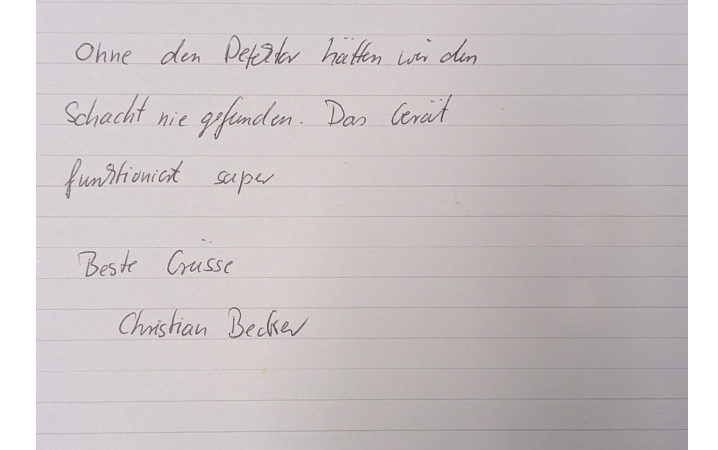 Ohne den Detektor hätten wir den
Schacht nie gefunden. Das Gerät
funktioniert super
Beste Grüsse
Christian Becker